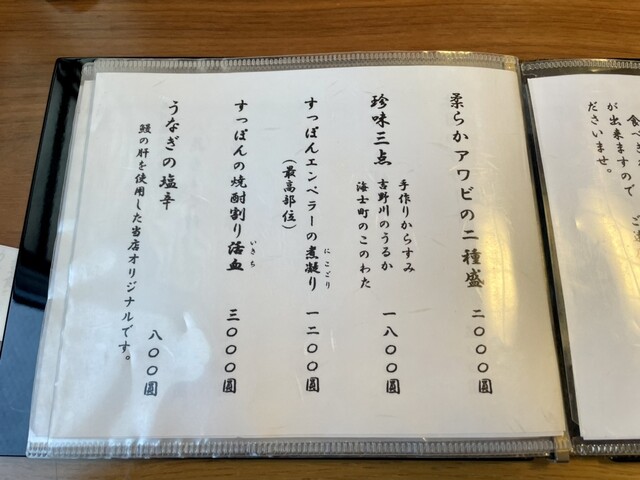 食べき
が出来ますので
ださいませ。
柔らかアワビの二種盛 二〇〇〇圓
珍味三点
手作りからすみ
吉野川のうるか
海士町のこのわた
一八〇〇圓
すっぽんエンペラーの煮凝り
にこごり
(最高部位)
一二〇〇圓
すっぽんの焼酎割り活血
いきち
三〇〇〇圓
うなぎの塩辛
鰻の肝を使用した当店オリジナルです。
八〇〇圓